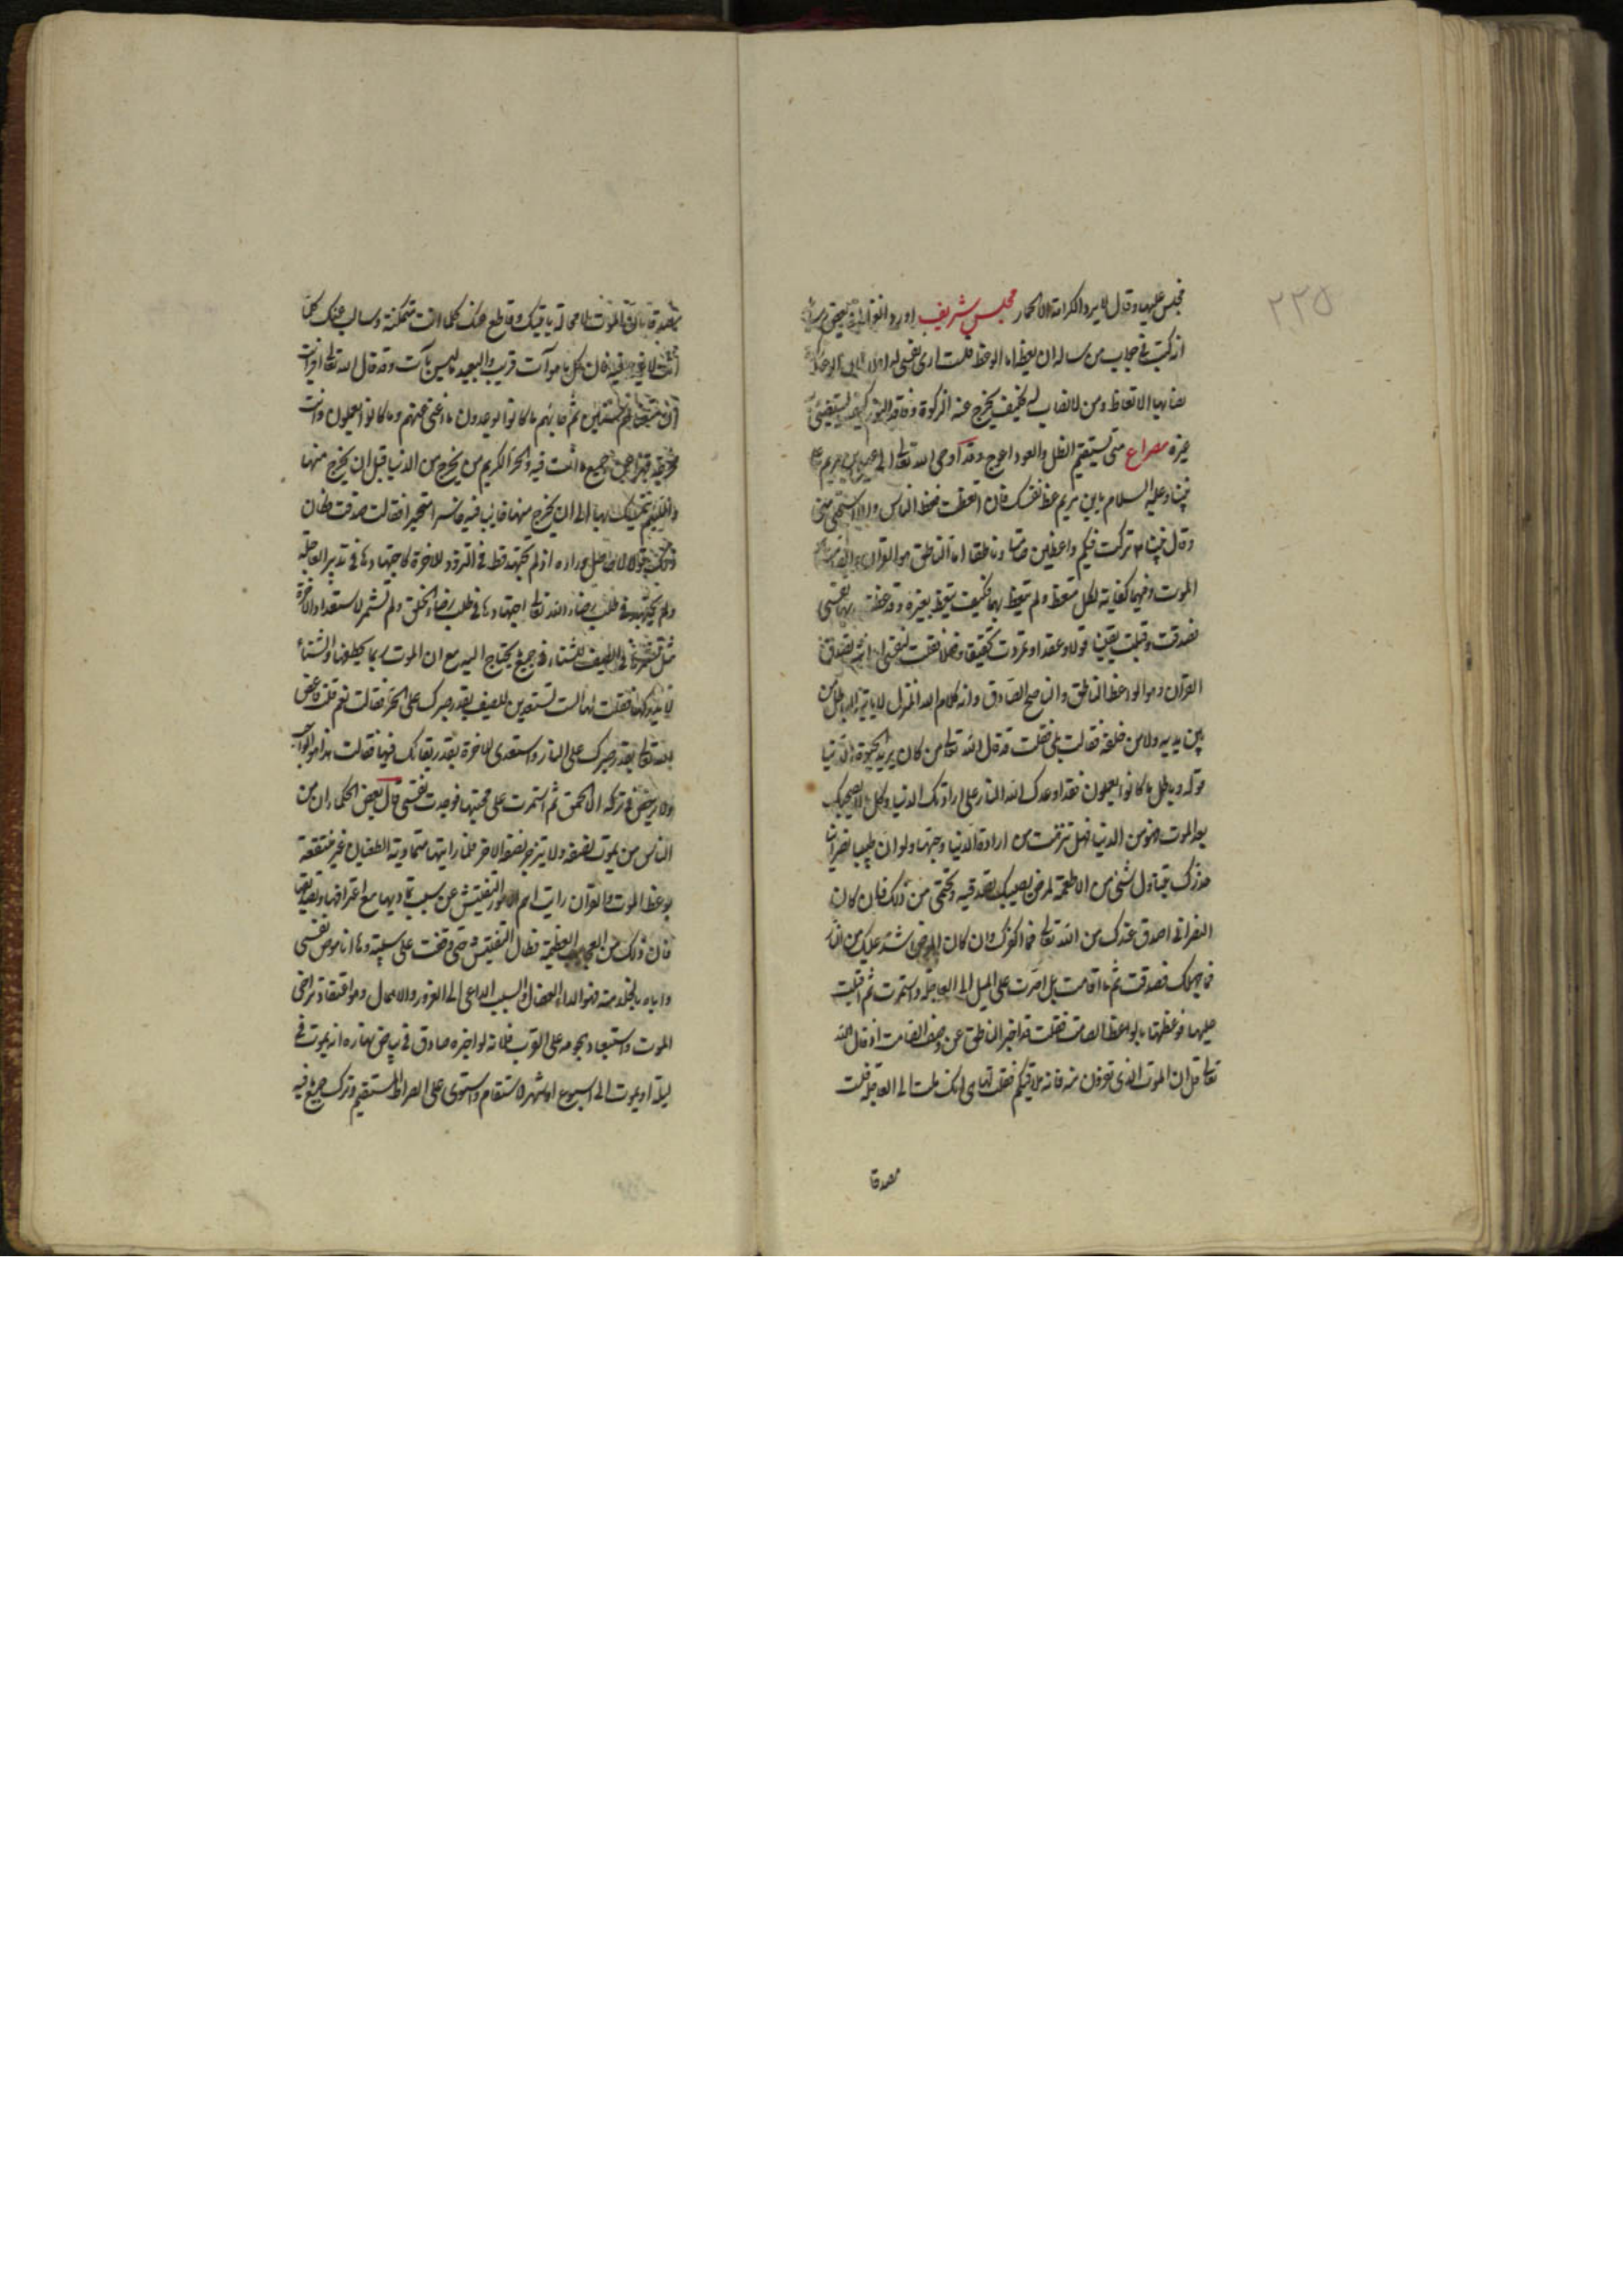 ٢٣٥
فجلس عليها وقال لا يرد الكرامة الا الحمار مجلس شريف اورد الغزالي في بعض
انه كتب في جواب من ساله ان يعظه اما الوعظ فلست ارى نفسي له اهلا لان الوعظ زكوة
نصابها الاتعاظ ومن لا نصاب له فكيف يخرج عنه الزكوة وفاقد النور كيف يستضيء به
غيره مصراع متى يستقيم الظل والعود اعوج وقد اوحى الله تعالى الى عيسى بن مريم على
نبينا وعليه السلام يا بن مريم عظ نفسك فان اتعظت فعظ الناس والا فاستحي مني
وقال نبينا تركت فيكم واعظين صامتا وناطقا اما الناطق هو القران والصامت
الموت وفيهما كفاية لكل متعظ ولم يتعظ بهما فكيف يتعظ بغيره وقد وعظت بهما نفسي
فصدقت وقبلت يقينا قولا وعقدا وتمردت تحقيقا وفعلا فقلت لنفسي
القران هو الواعظ الناطق والناصح الصادق وانه كلام الله المنزل لا ياتيه الباطل من
بين يديه ولا من خلفه فقالت بلى فقلت قد قال الله تعالى من كان يريد الحيوة الدنيا
قوله وباطل ما كانوا يعملون فقد اوعدك الله النار على ارادتك الدنيا وكل ما لا يصحبك
بعد الموت فهو من الدنيا فهل تنزهت من ارادة الدنيا وحبها ولو ان طبيبا نصرانيا
حذرك تناول شيء من الاطعمة لمرض يصيبك لصدقته وتحتمي من ذلك فان كان
النصراني اصدق عندك من الله تعالى فما اكفرك وان كان المرض اشد عليك من النار
فما اجهلك فصدقت ثم ما اقامت بل اصرت على الميل الى العاجلة واستمرت ثم اقبلت
عليها فوعظتها بالواعظ الصامت فقلت قد اخبر الناطق عن وصف الصامت اذ قال الله
تعالى قل ان الموت الذي تفرون منه فانه ملاقيكم فقلت لها هي انك ملت الى العاجلة فلست
مصدقا
مصدقا بان الموت لا محالة ياتيك وقاطع عنك كلما انت متمكنة وسالب عنك كلما
انت لا غير فيه فان كل ما هو آت قريب والبعيد ما ليس بآت وقد قال الله تعالى افرايت
ان متعناهم سنين ثم جائهم ما كانوا يوعدون ما اغنى عنهم وما كانوا يعملون وانت
جميع ما انت فيه والحر الكريم من يخرج من الدنيا قبل ان يخرج منها
واللئيم يتمسك بها الى ان يخرج منها خائبا فقالت صدقت فكان
ذلك قولا لا حاصل وراءه اذ لم تجتهد قط في التزود للاخرة كاجتهادها في تدبير العاجلة
ولم تجتهد في طلب رضاء الله تعالى اجتهادها في طلب رضاء الخلق ولم تشمر لاستعداد الاخرة
مثل تشمرها في الصيف للشتاء في جميع ما يحتاج اليه مع ان الموت ربما يخطفها والشتاء
لا يدركها فقلت لها الست تستعدين للصيف بقدر صبرك على الحر فقالت نعم قلت فاعصي
الله تعالى بقدر صبرك على النار واستعدي للاخرة بقدر بقائك فيها فقالت هذا هو الواجب
ولا يرخص في تركه الا الحمق ثم استمرت على سجيتها فوجدت نفسي كما قال بعض الحكماء ان من
الناس من يموت نصفه ولا ينزجر نصفه الاخر فلما رايتها متمادية الطغيان غير منتفعة
بوعظ الموت والقران رايت اهم الامور التفتيش عن سبب تماديها مع اعترافها وتصديقها
فان ذلك من العجائب العظيمة فطال التفتيش حتى وقفت على سببه وها انا موص نفسي
واياه بالحذر منه فهو الداء العضال والسبب الداعي الى الغرور والاهمال وهو اعتقاد تراخي
الموت واستبعاد هجومه على القرب فانه لو اخبره صادق في بياض نهاره انه يموت في
ليلة او يموت الى اسبوع او شهر لاستقام واستوى على الصراط المستقيم وترك جميع ما فيه